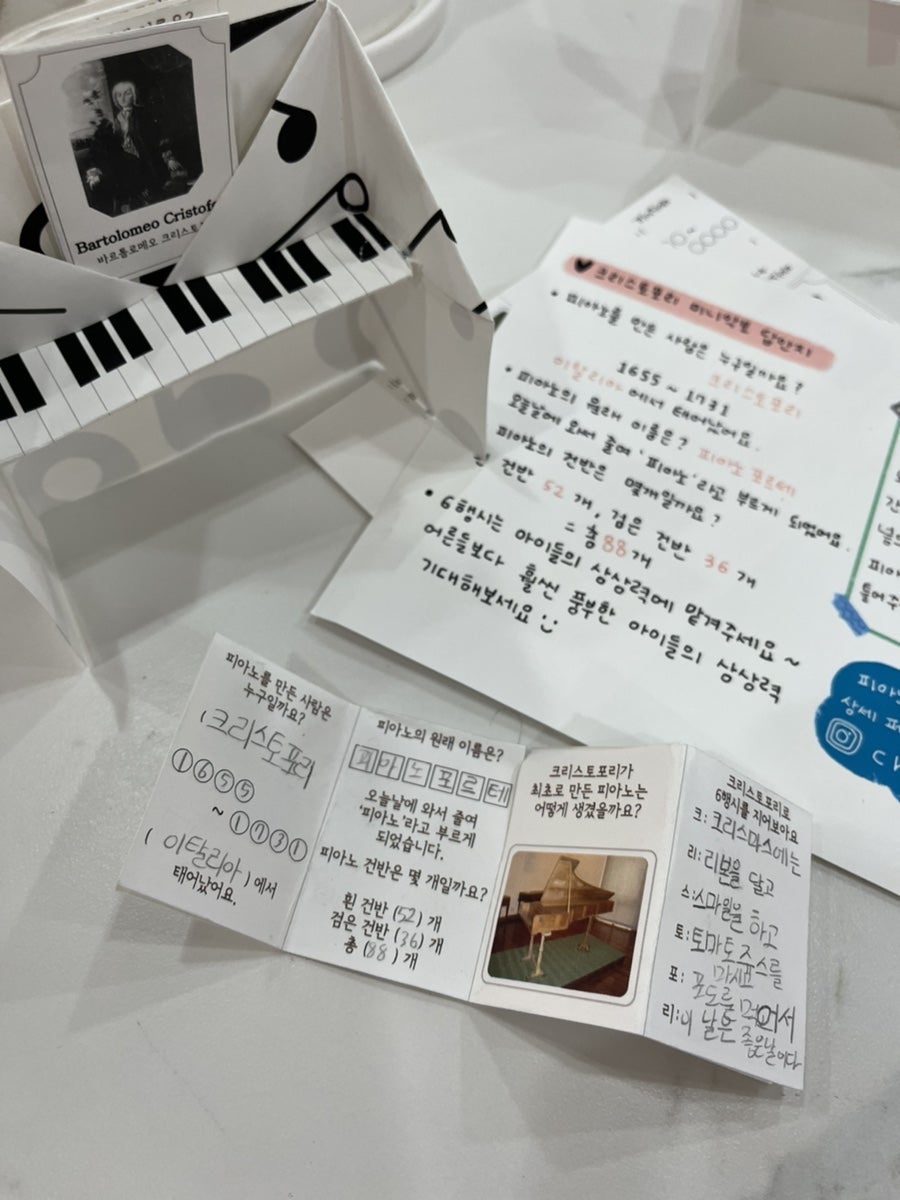 Bartolomeo Cristofo
바르톨로메오 크리스토
YouTube
크리스토포리 미니악보 답안지
• 피아노를 만든 사람은 누구일까요?
크리스토포리
1655 ~ 1731
이탈리아 에서 태어났어요.
• 피아노의 원래 이름은? 피아노 포르테
오늘날에 와서 줄여 '피아노'라고 부르게 되었어요.
피아노의 건반은 몇개일까요?
건반 52 개, 검은 건반 36 개
= 총 88 개
• 6행시는 아이들의 상상력에 맡겨주세요~
어른들보다 훨씬 풍부한 아이들의 상상력
기대해보세요
피아
들어주
피아
상세 퍼
피아노를 만든 사람은
누구일까요?
(크리스토포리
1655
~1731
(이탈리아)에서
태어났어요.
피아노의 원래 이름은?
피아노포르테
오늘날에 와서 줄여
'피아노'라고 부르게
되었습니다.
피아노 건반은 몇 개일까요?
흰 건반 (52) 개
검은 건반 (36) 개
총 (88) 개
크리스토포리가
최초로 만든 피아노는
어떻게 생겼을까요?
크리스토포리로
6행시를 지어보아요
크: 크리스마스에는
리: 리본을 달고
스: 스마일을 하고
토: 토마토주스를
마시고
포: 포도를 먹어서
리: 이 날은 좋은날이다